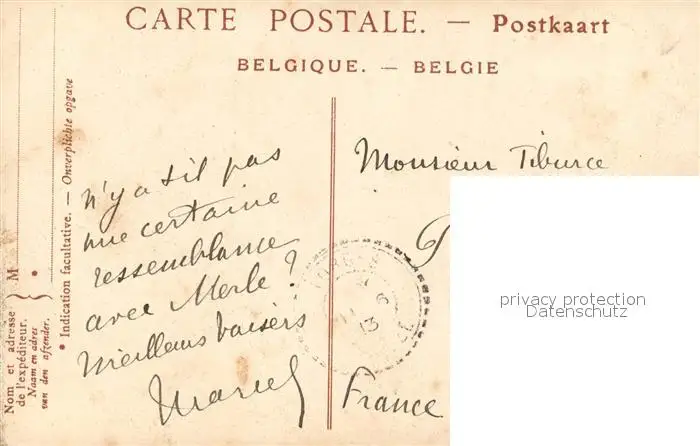 CARTE POSTALE. — Postkaart
BELGIQUE. — BELGIE
Nom et adresse
de l'expéditeur.
Naam en adres
van den afzender.
M
• Indication facultative. — Onverplichte opgave
n'y a t il pas
une certaine
ressemblance
avec Merle ?
Meilleurs baisers
Marcel
Monsieur Tiburce
France
privacy protection
Datenschutz